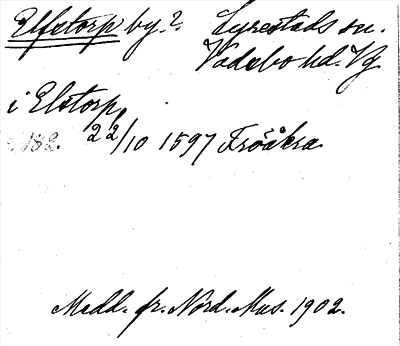 Elfstorp by? Lyrestads sn.
Vadsbo hd. Vg
i Elstorp,
s. 132. 22/10 1597 Fröåkra
Medd. fr. Nord. Mus. 1902.